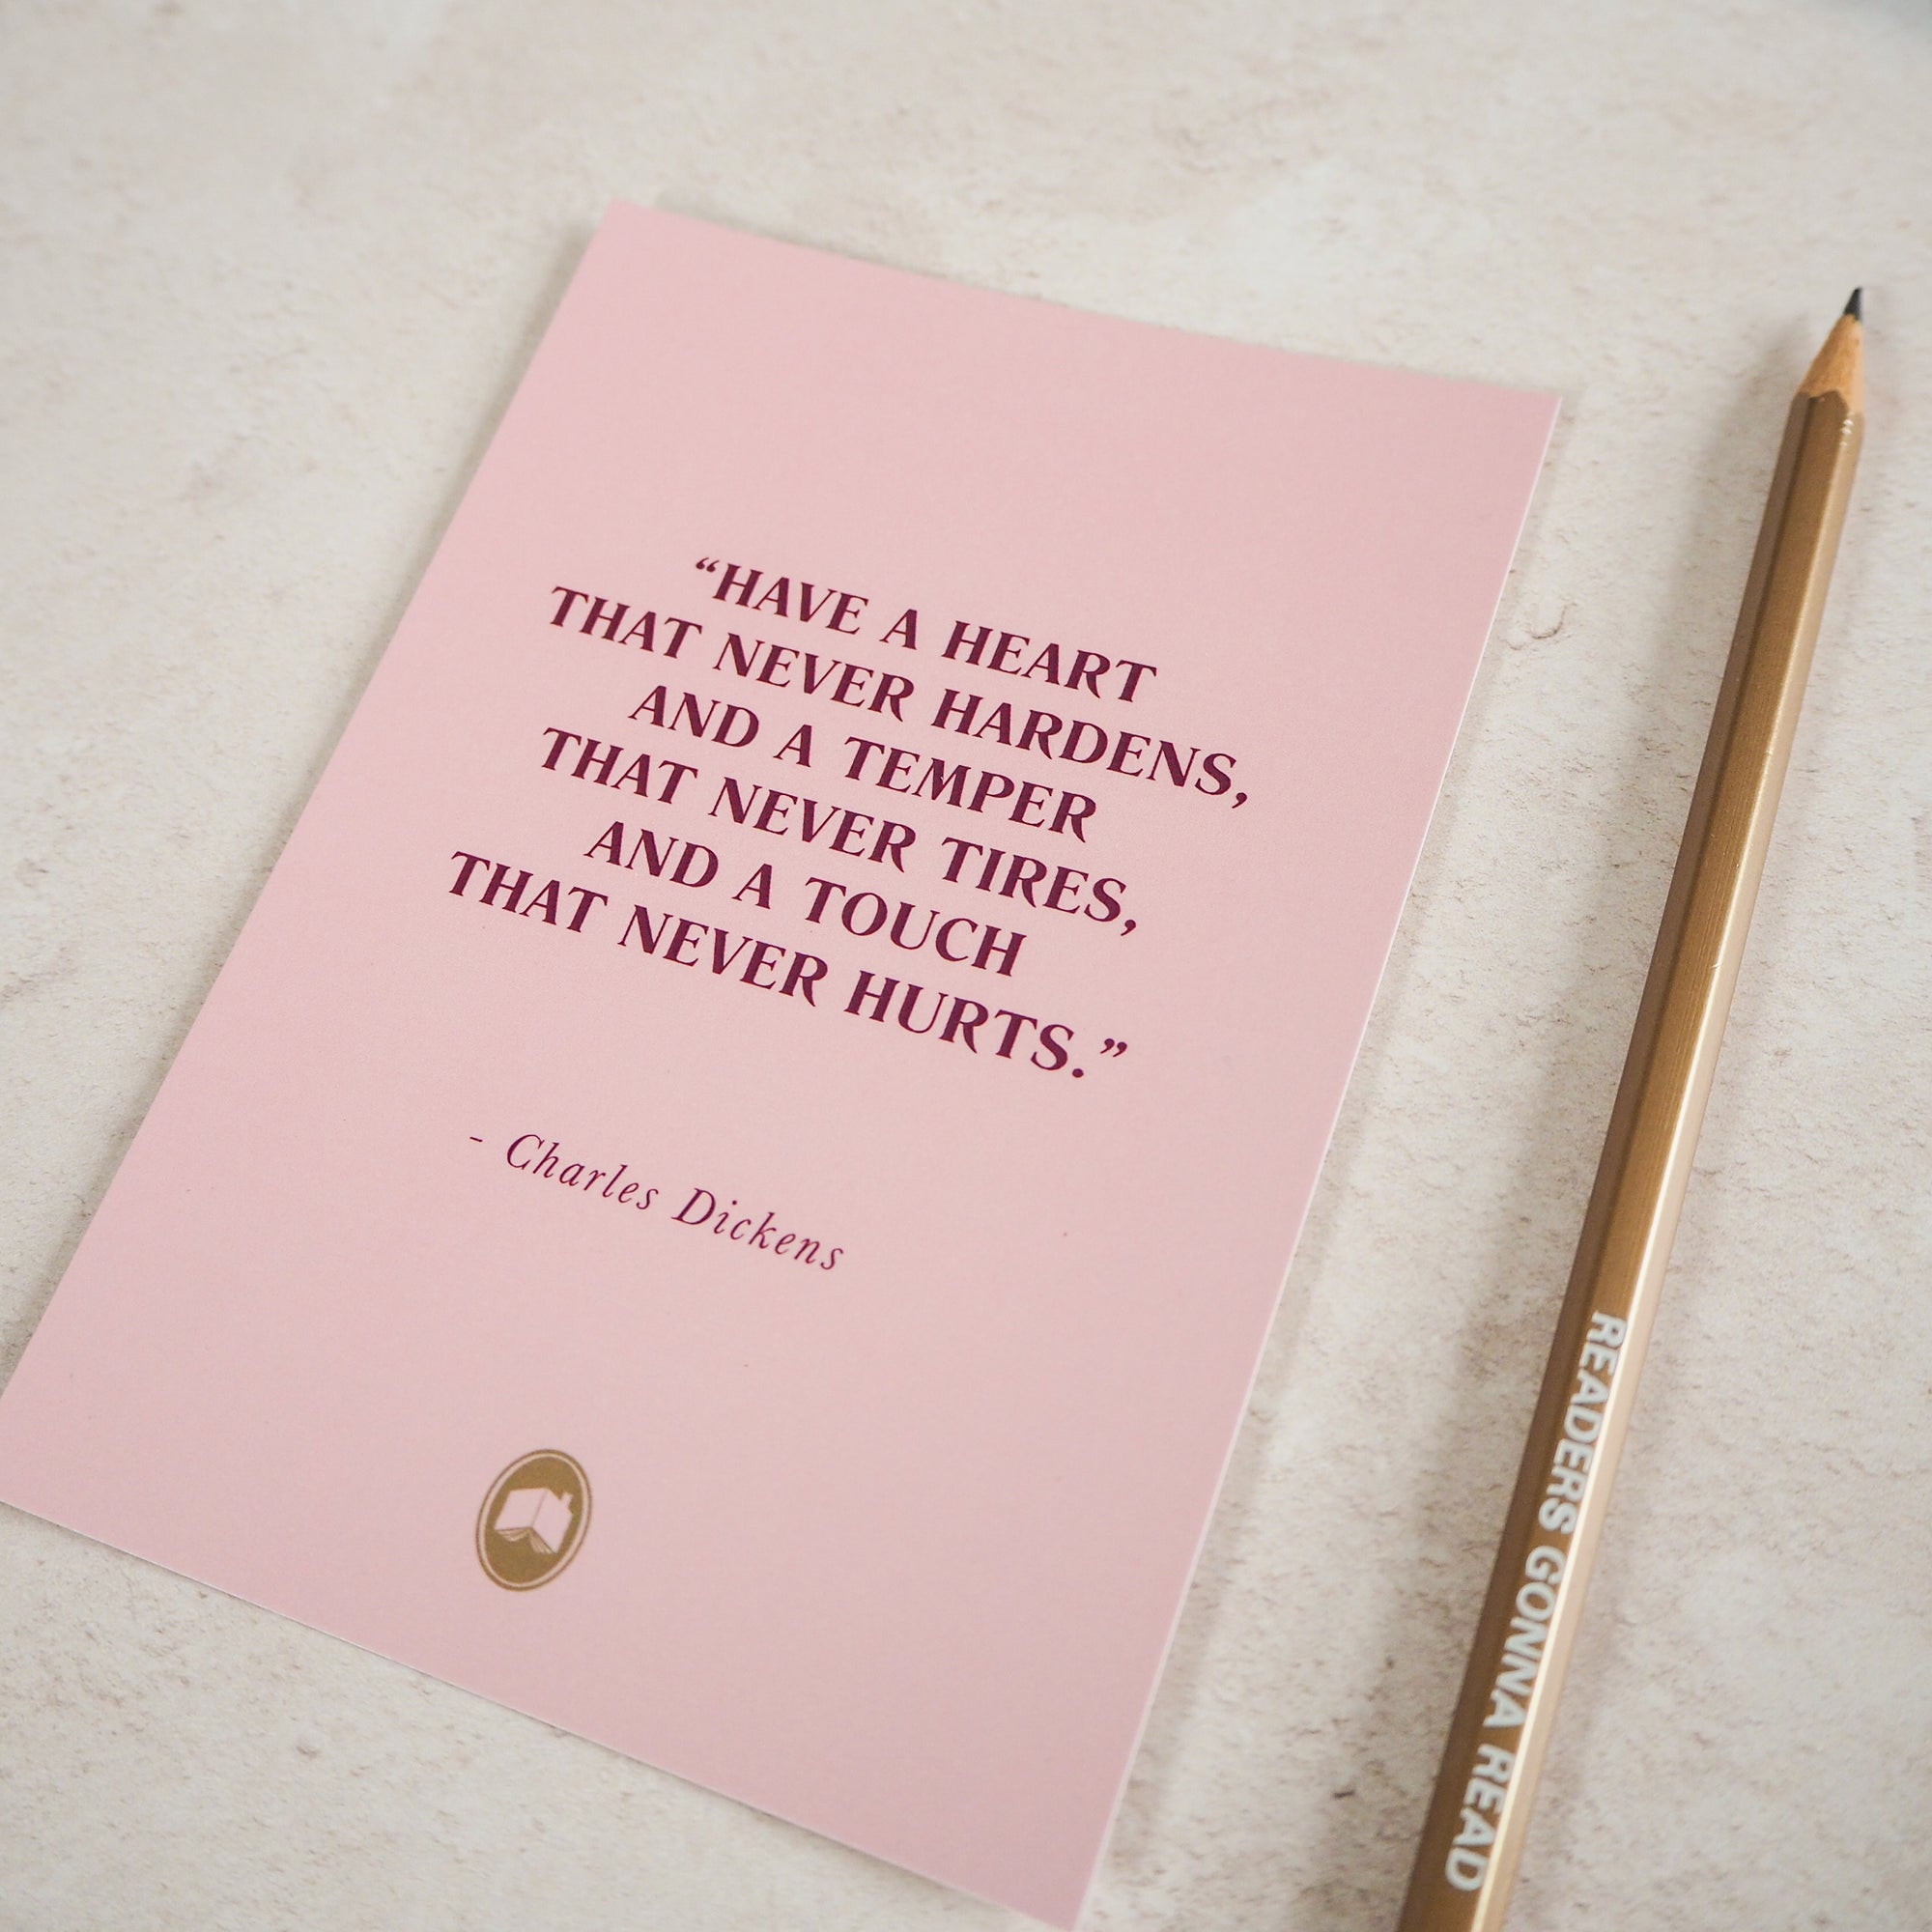 “HAVE A HEART
THAT NEVER HARDENS,
AND A TEMPER
THAT NEVER TIRES,
AND A TOUCH
THAT NEVER HURTS.”
- Charles Dickens
READERS GONNA READ